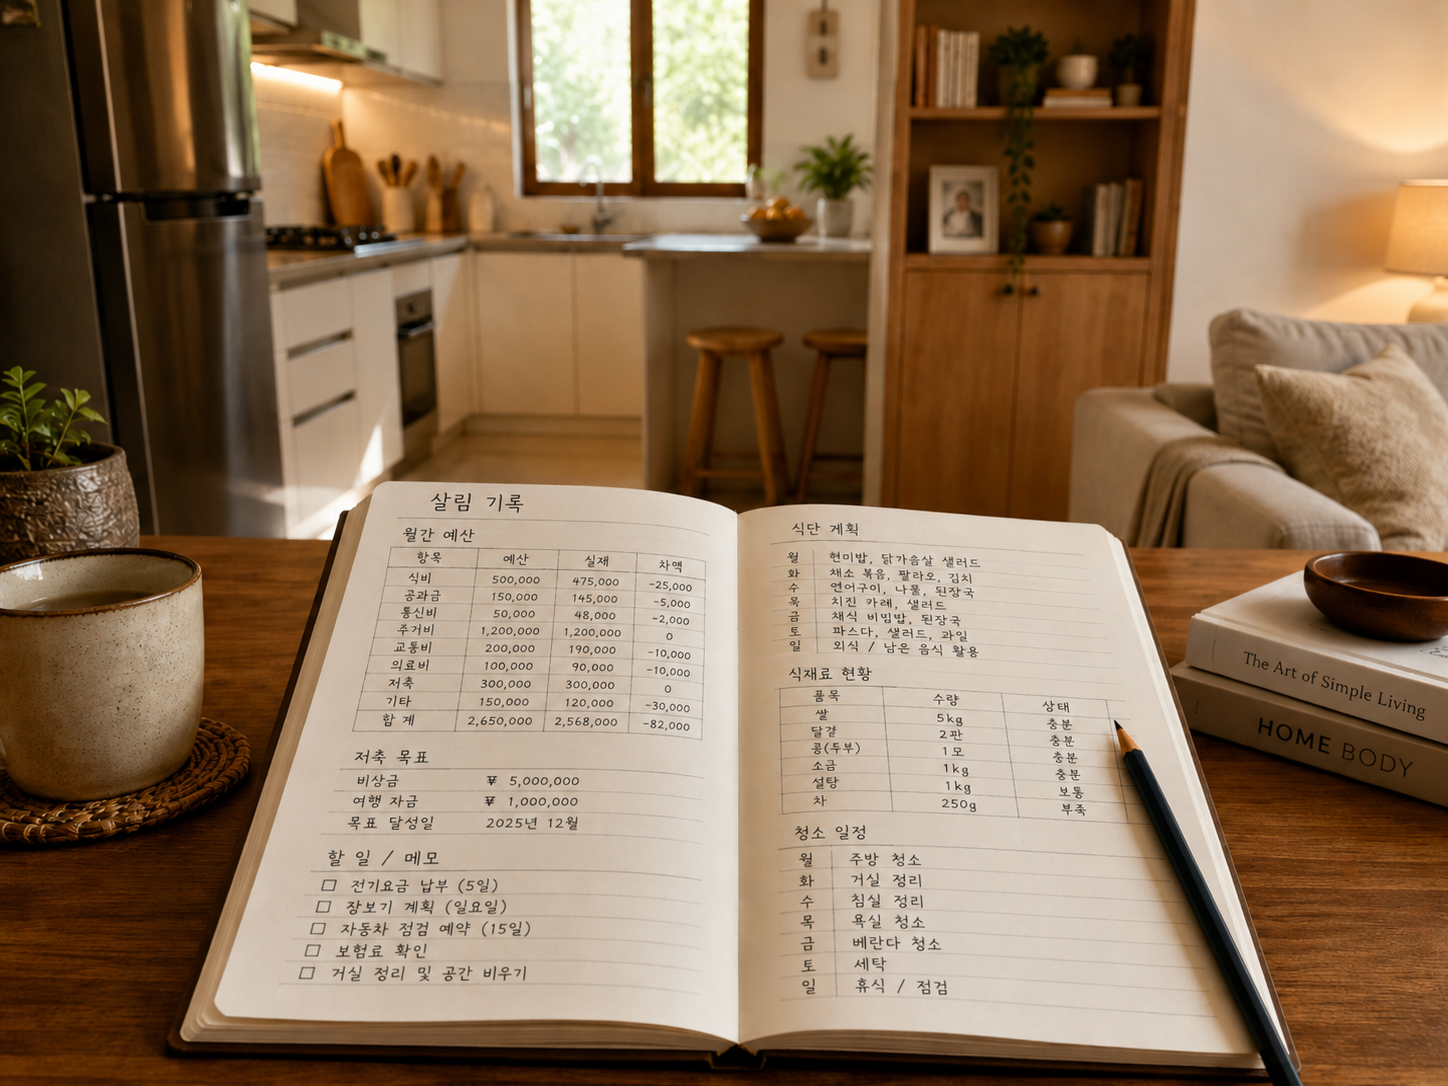 살림 기록
월간 예산
항목 예산 실재 차액
식비 500,000 475,000 -25,000
공과금 150,000 145,000 -5,000
통신비 50,000 48,000 -2,000
주거비 1,200,000 1,200,000 0
교통비 200,000 190,000 -10,000
의료비 100,000 90,000 -10,000
저축 300,000 300,000 0
기타 150,000 120,000 -30,000
합계 2,650,000 2,568,000 -82,000
저축 목표
비상금 ¥ 5,000,000
여행 자금 ¥ 1,000,000
목표 달성일 2025년 12월
할 일 / 메모
□ 전기요금 납부 (5일)
□ 장보기 계획 (일요일)
□ 자동차 점검 예약 (15일)
□ 보험료 확인
□ 거실 정리 및 공간 비우기
식단 계획
월 현미밥, 닭가슴살 샐러드
화 채소 볶음, 팔라오, 김치
수 연어구이, 나물, 된장국
목 치진 카레, 샐러드
금 채식 비빔밥, 된장국
토 파스다, 샐러드, 과일
일 외식 / 남은 음식 활용
식재료 현황
품목 수량 상태
쌀 5kg 충분
달걀 2판 충분
콩(두부) 1모 충분
소금 1kg 충분
설탕 1kg 보통
차 250g 부족
청소 일정
월 주방 청소
화 거실 정리
수 침실 정리
목 욕실 청소
금 베란다 청소
토 세탁
일 휴식 / 점검
The Art of Simple Living
HOME BODY